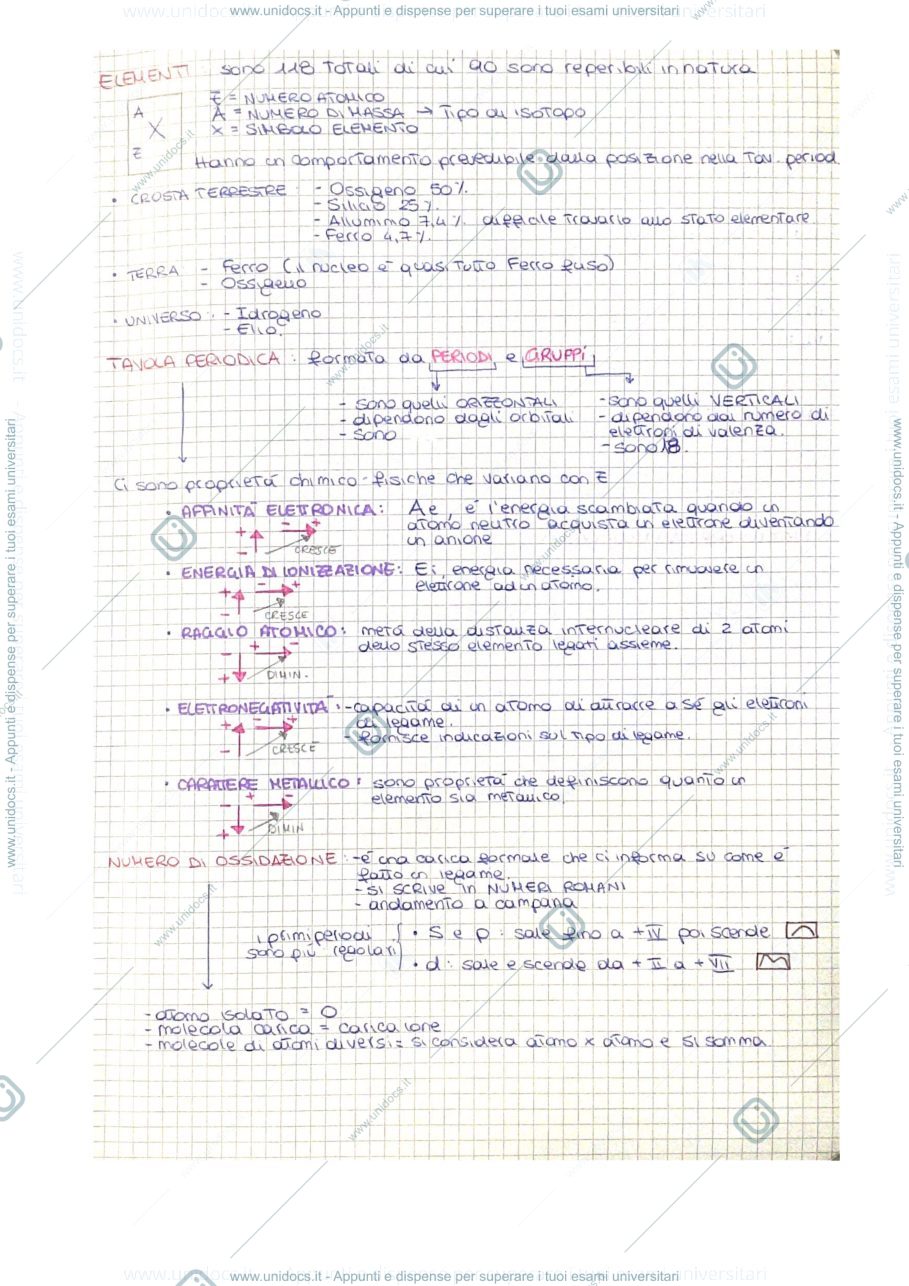 www.unidocs.it - Appunti e dispense per superare i tuoi esami universitari
ELEMENTI: sono 118 totali di cui 90 sono reperibili in natura
A
X
Z
Z = NUMERO ATOMICO
A = NUMERO DI MASSA → Tipo di isotopo
X = SIMBOLO ELEMENTO
Hanno un comportamento prevedibile dalla posizione nella Tav. period
• CROSTA TERRESTRE: - Ossigeno 50%.
- Silicio 25%.
- Alluminio 7,4% difficile trovarlo allo stato elementare.
- Ferro 4,7%.
• TERRA - Ferro (il nucleo è quasi tutto Ferro fuso)
- Ossigeno
• UNIVERSO: - Idrogeno
- Elio.
TAVOLA PERIODICA: formata da PERIODI e GRUPPI
- sono quelli ORIZZONTALI
- dipendono dagli orbitali
- sono
- sono quelli VERTICALI
- dipendono dal numero di
elettroni di valenza.
- sono 18.
Ci sono proprietà chimico-fisiche che variano con Z
• AFFINITÀ ELETTRONICA: Ae, è l'energia scambiata quando un
atomo neutro acquista un elettrone diventando
un anione
+ - + - CRESCE
• ENERGIA DI IONIZZAZIONE: Ei, energia necessaria per rimuovere un
elettrone ad un atomo.
+ - + - CRESCE
• RAGGIO ATOMICO: metà della distanza internucleare di 2 atomi
dello stesso elemento legati assieme.
- + - + DIMIN.
• ELETTRONEGATIVITÀ: - capacità di un atomo di attrarre a sé gli elettroni
di legame.
- fornisce indicazioni sul tipo di legame.
+ - + - CRESCE
• CARATTERE METALLICO: sono proprietà che definiscono quanto un
elemento sia metallico.
- + - + DIMIN
NUMERO DI OSSIDAZIONE: - è una carica formale che ci informa su come è
fatto un legame.
- SI SCRIVE in NUMERI ROMANI
- andamento a campana
i primi periodi
sono più regolari
• S e p: sale fino a +IV poi scende
• d: sale e scende da +II a +VII
- atomo isolato = 0
- molecola carica = carica ione
- molecole di atomi diversi = si considera atomo x atomo e si somma
www.unidocs.it - Appunti e dispense per superare i tuoi esami universitari